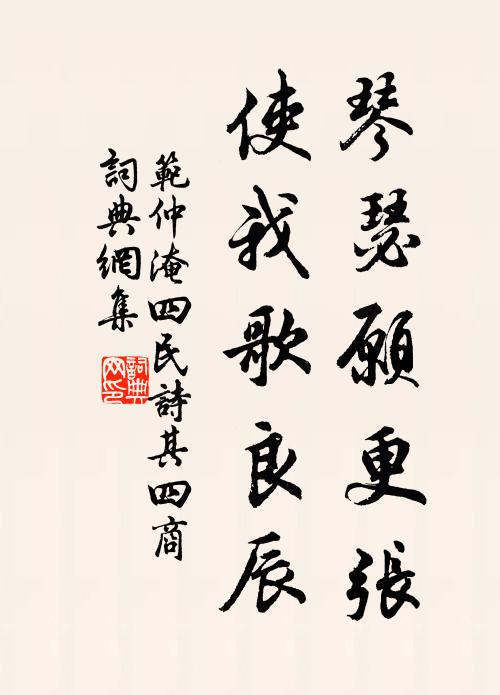 琴瑟願更張
使我歌良辰
範仲淹四民詩其四商
詞典網集
詞典
网印